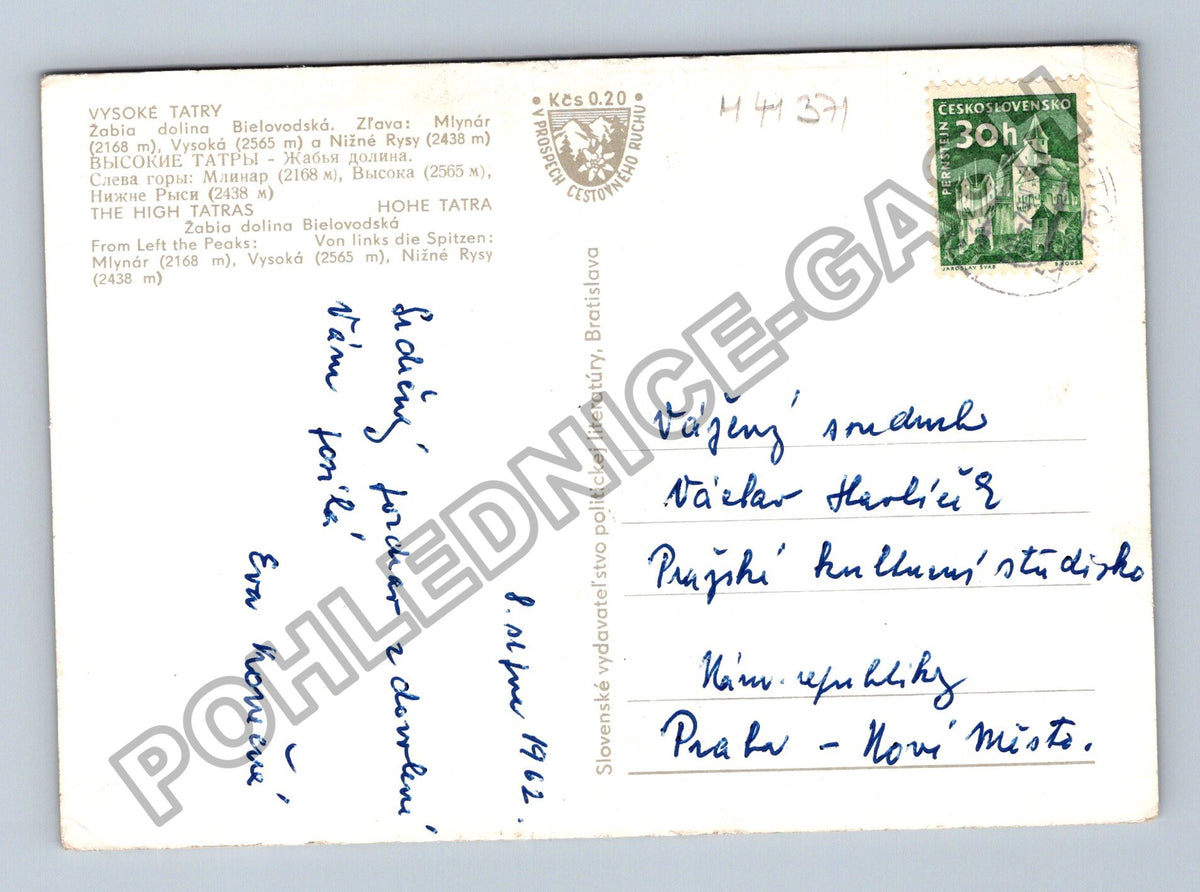 VYSOKÉ TATRY
Žabia dolina Bielovodská. Zľava: Mlynár
(2168 m), Vysoká (2565 m) a Nižné Rysy (2438 m)
ВЫСОКИЕ ТАТРЫ - Жабья долина.
Слева горы: Млинар (2168 м), Высока (2565 м),
Нижне Рыси (2438 м)
THE HIGH TATRAS HOHE TATRA
Žabia dolina Bielovodská
From Left the Peaks: Von links die Spitzen:
Mlynár (2168 m), Vysoká (2565 m), Nižné Rysy
(2438 m)
• Kčs 0.20 •
V PROSPECH CESTOVNÉHO RUCHU
M 41 371
ČESKOSLOVENSKO
30h
PERNŠTEJN
JAROSLAV ŠVÁB
Slovenské vydavateľstvo politickej literatúry, Bratislava
Srdečný pozdrav z dovolené
Vám posílá
Eva Konečná
8. srpna 1962.
Vážený soudruh
Václav Havlíček
Pražské kulturní středisko
Nám. republiky
Praha – Nové Město.
POHLEDNICE-GASH